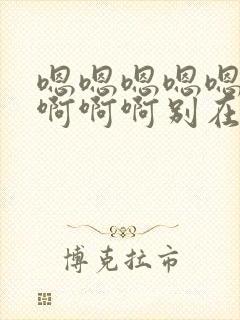 嗯嗯嗯嗯嗯
啊啊啊别在
博克拉市